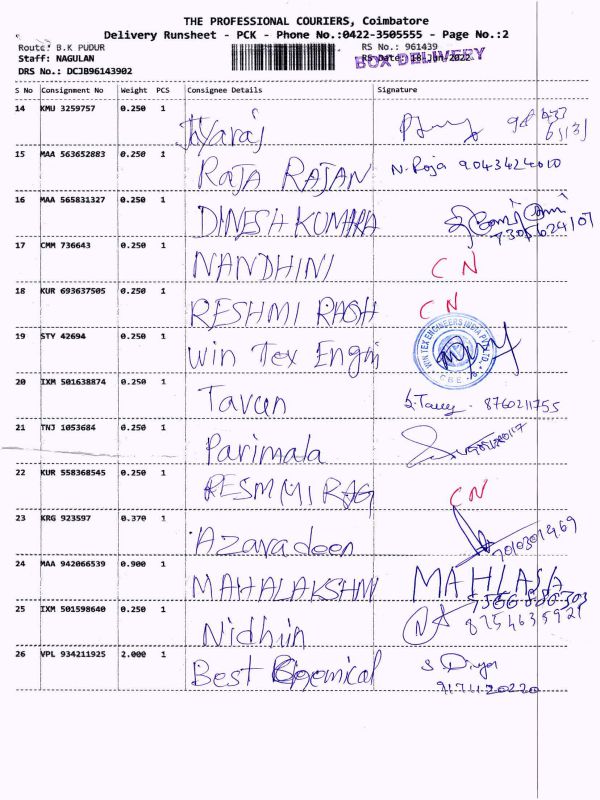 THE PROFESSIONAL COURIERS, Coimbatore
Delivery Runsheet - PCK - Phone No.:0422-3505555 - Page No.:2
Route: B.K PUDUR RS No.: 961439
Staff: NAGULAN RS Date: 18-Jan-2022
BOX DELIVERY
DRS No.: DCJB96143902
S No Consignment No Weight PCS Consignee Details Signature
14 KMU 3259757 0.250 1
15 MAA 563652883 0.250 1 RAJA RAJAN N. Roja 9043424610
16 MAA 565831327 0.250 1 DINESH KUMARA
17 CMM 736643 0.250 1 NANDHINI CN
18 KUR 693637505 0.250 1 RESHMI RAGH CN
19 STY 42694 0.250 1 Win Tex Engin
WIN TEX ENGINEERS INDIA PVT LTD. CBE
20 IXM 501638874 0.250 1 Tavun 8760211755
21 TNJ 1053684 0.250 1 Parimala
22 KUR 558368545 0.250 1 RESMMI RAG CN
23 KRG 923597 0.370 1 Azaradeen
24 MAA 942066539 0.900 1 MAHALAKSHMI
25 IXM 501598640 0.250 1 Nidhin 8754635921
26 VPL 934211925 2.000 1 Best Chemical S Divya